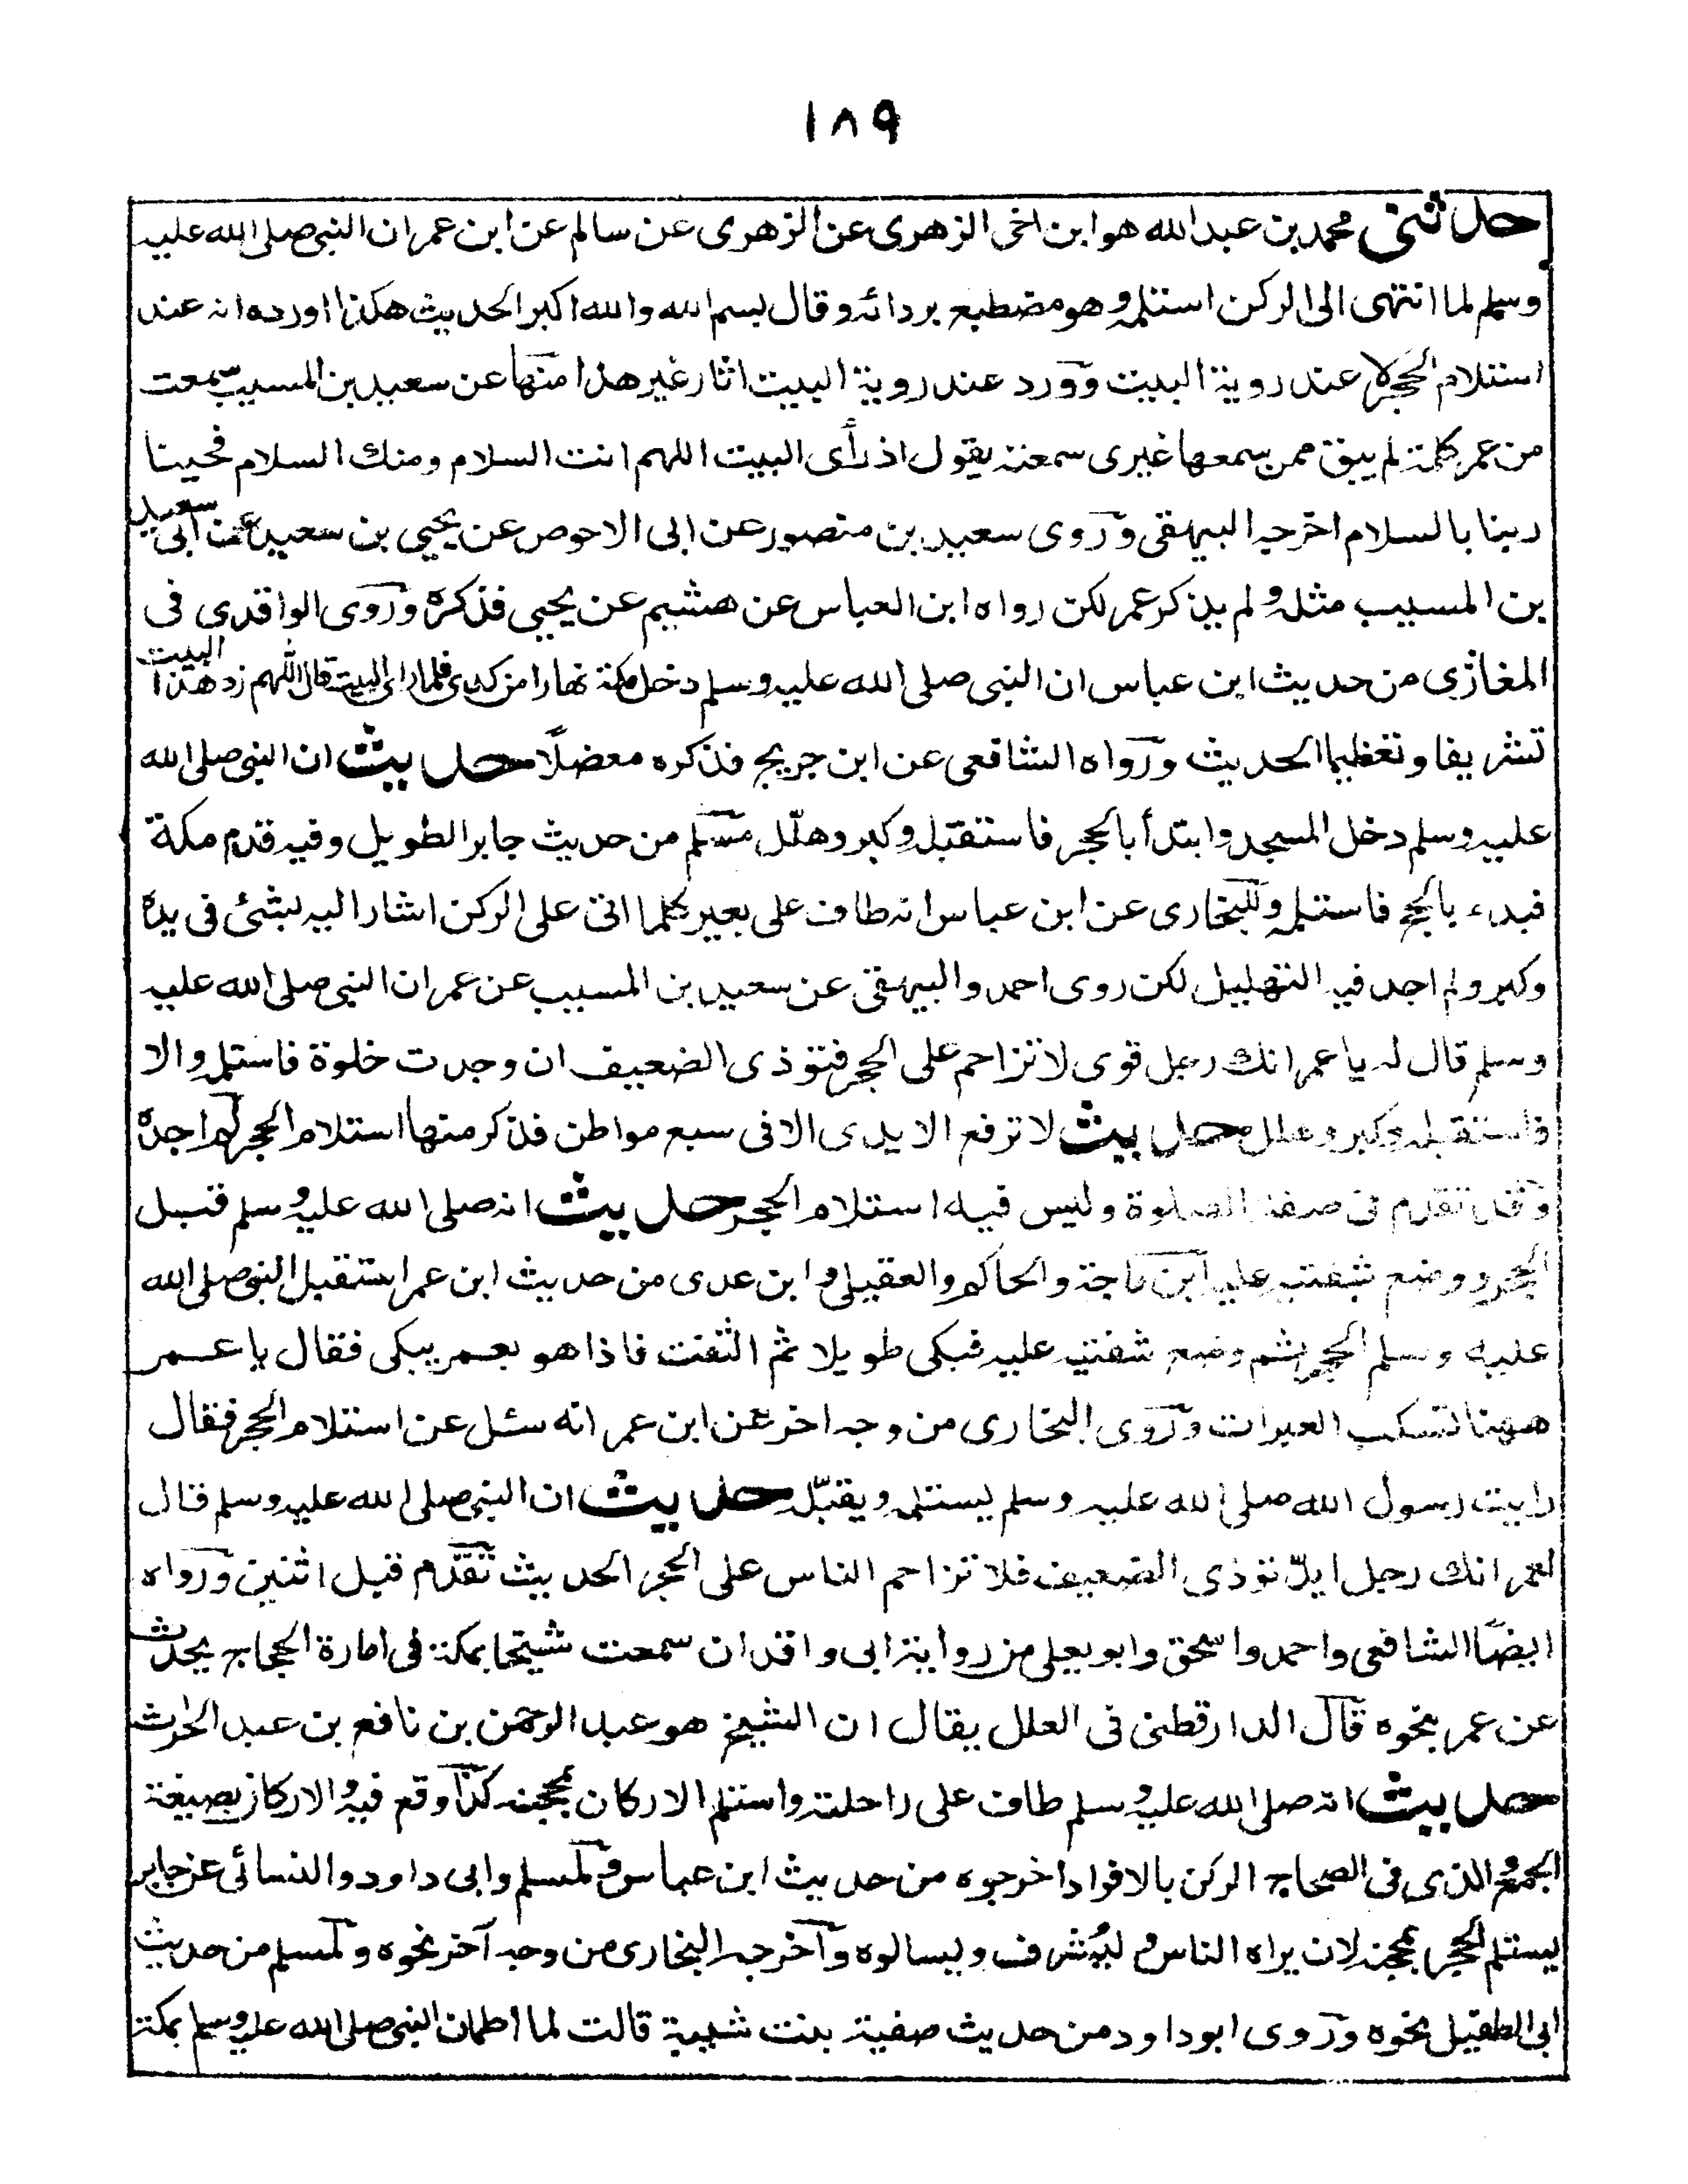 ١٨٩
حدثنى محمد بن عبد الله هو ابن اخى الزهرى عن الزهرى عن سالم عن ابن عمر ان النبى صلى الله عليه
وسلم لما انتهى الى الركن استلمه وهو مضطبع بردائه وقال بسم الله والله اكبر الحديث هكذا اورده انه عند
استلام الحجر لا عند روية البيت وورد عند روية البيت اثار غير هذا منها عن سعيد بن المسيب سمعت
من عمر كلمة لم يبق ممن سمعها غيرى سمعته يقول اذ رأى البيت اللهم انت السلام ومنك السلام فحينا
ربنا بالسلام اخرجه البيهقى وروى سعيد بن منصور عن ابى الاحوص عن يحيى بن سعيد عن ابى سعيد
بن المسيب مثله ولم يذكر عمر لكن رواه ابن العباس عن هشيم عن يحيى فذكره وروى الواقدى فى
المغازى من حديث ابن عباس ان النبى صلى الله عليه وسلم دخل مكة نهارا من كدى فلما راى البيت قال اللهم زد هذا البيت
تشريفا وتعظيما الحديث ورواه الشافعى عن ابن جريج فذكره معضلًا حديث ان النبى صلى الله
عليه وسلم دخل المسجد وابتدأ بالحجر فاستقبله وكبر وهلّل مسلم من حديث جابر الطويل وفيه قدم مكة
فبدء بالحجر فاستلمه وللبخارى عن ابن عباس انه طاف على بعير كلما اتى على الركن اشار اليه بشئ فى يده
وكبر ولم اجد فيه التهليل لكن روى احمد والبيهقى عن سعيد بن المسيب عن عمر ان النبى صلى الله عليه
وسلم قال له يا عمر انك رجل قوى لا تزاحم على الحجر فتوذى الضعيف ان وجدت خلوة فاستلمه والا
فاستقبله وكبر وهلل حديث لا ترفع الايدى الا فى سبع مواطن فذكر منها استلام الحجر لم اجده
وقد تقدم فى صفة الصلوة وليس فيه استلام الحجر حديث انه صلى الله عليه وسلم قبل
الحجر ووضع شفتيه عليه ابن ماجة والحاكم والعقيلى وابن عدى من حديث ابن عمر استقبل النبى صلى الله
عليه وسلم الحجر ثم وضع شفتيه عليه فبكى طويلا ثم التفت فاذا هو بعمر يبكى فقال يا عمر
ههنا تسكب العبرات وروى البخارى من وجه اخر عن ابن عمر انه سئل عن استلام الحجر فقال
رايت رسول الله صلى الله عليه وسلم يستلمه ويقبّله حديث ان النبى صلى الله عليه وسلم قال
لعمر انك رجل ايدّ توذى الضعيف فلا تزاحم الناس على الحجر الحديث تقدم قبل اثنين ورواه
ايضًا الشافعى واحمد واسحق وابو يعلى من رواية ابى واقد ان سمعت شيخا بمكة فى امارة الحجاج يحدث
عن عمر بنحوه قال الدارقطنى فى العلل يقال ان الشيخ هو عبد الرحمن بن نافع بن عبد الحارث
حديث انه صلى الله عليه وسلم طاف على راحلته واستلم الاركان بمحجنه كذا وقع فيه الاركان بصيغة
الجمع والذى فى الصحاح الركن بالافراد اخرجوه من حديث ابن عباس ولمسلم وابى داود والنسائى عن جابر
يستلم الحجر بمحجنه لان يراه الناس وليُشرف وليسالوه واخرجه البخارى من وجه آخر نحوه ولمسلم من حديث
ابى الطفيل نحوه وروى ابو داود من حديث صفية بنت شيبة قالت لما اطمان النبى صلى الله عليه وسلم بمكة